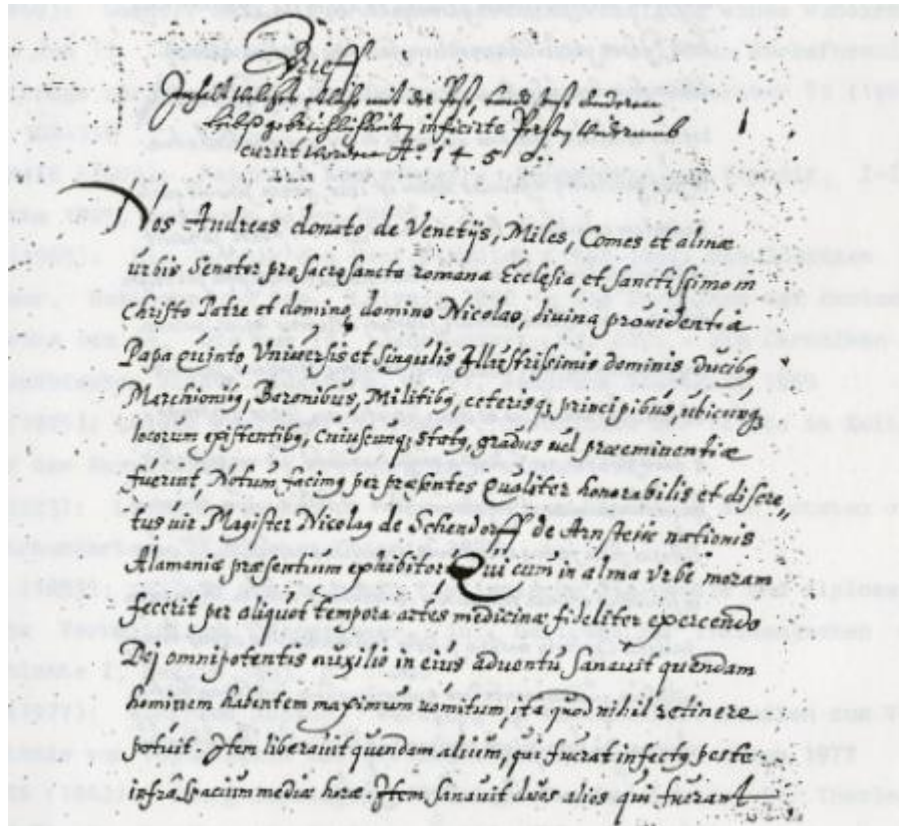 Brieff
mit der Pest,
inficirte
curirt worden A.º 145
Nos Andreas donato de Venetijs, Miles, Comes et almæ
urbis Senator pro sacrosancta romana Ecclesia et sanctissimo in
Christo Patre et domino, domino Nicolao, divina providentia
Papa quinto, Vniuersis et singulis Illustrissimis dominis, ducibꝫ
Marchionibꝫ, Baronibus, Militibꝫ, ceterisqꝫ principibus, ubicunqꝫ
locorum existentibꝫ, Cuiuscunqꝫ statꝰ, gradus uel præeminentiæ
fuerint, Notum facimꝰ per præsentes Qualiter honorabilis et discre„
tus uir Magister Nicolaꝰ de Schendorff de Arnstein nationis
Alamaniæ præsentium exhibitor Qui cum in alma Vrbe moram
fecerit per aliquot tempora artes medicinæ fideliter exercendo
Dej omnipotentis auxilio in eius aduentu, sanauit quendam
hominem habentem maximum uomitum, ita quod nihil retinere
potuit. Item liberauit quendam alium, qui fuerat infectꝰ peste
infra spacium mediæ horæ. Item sanauit duos alios qui fuerant